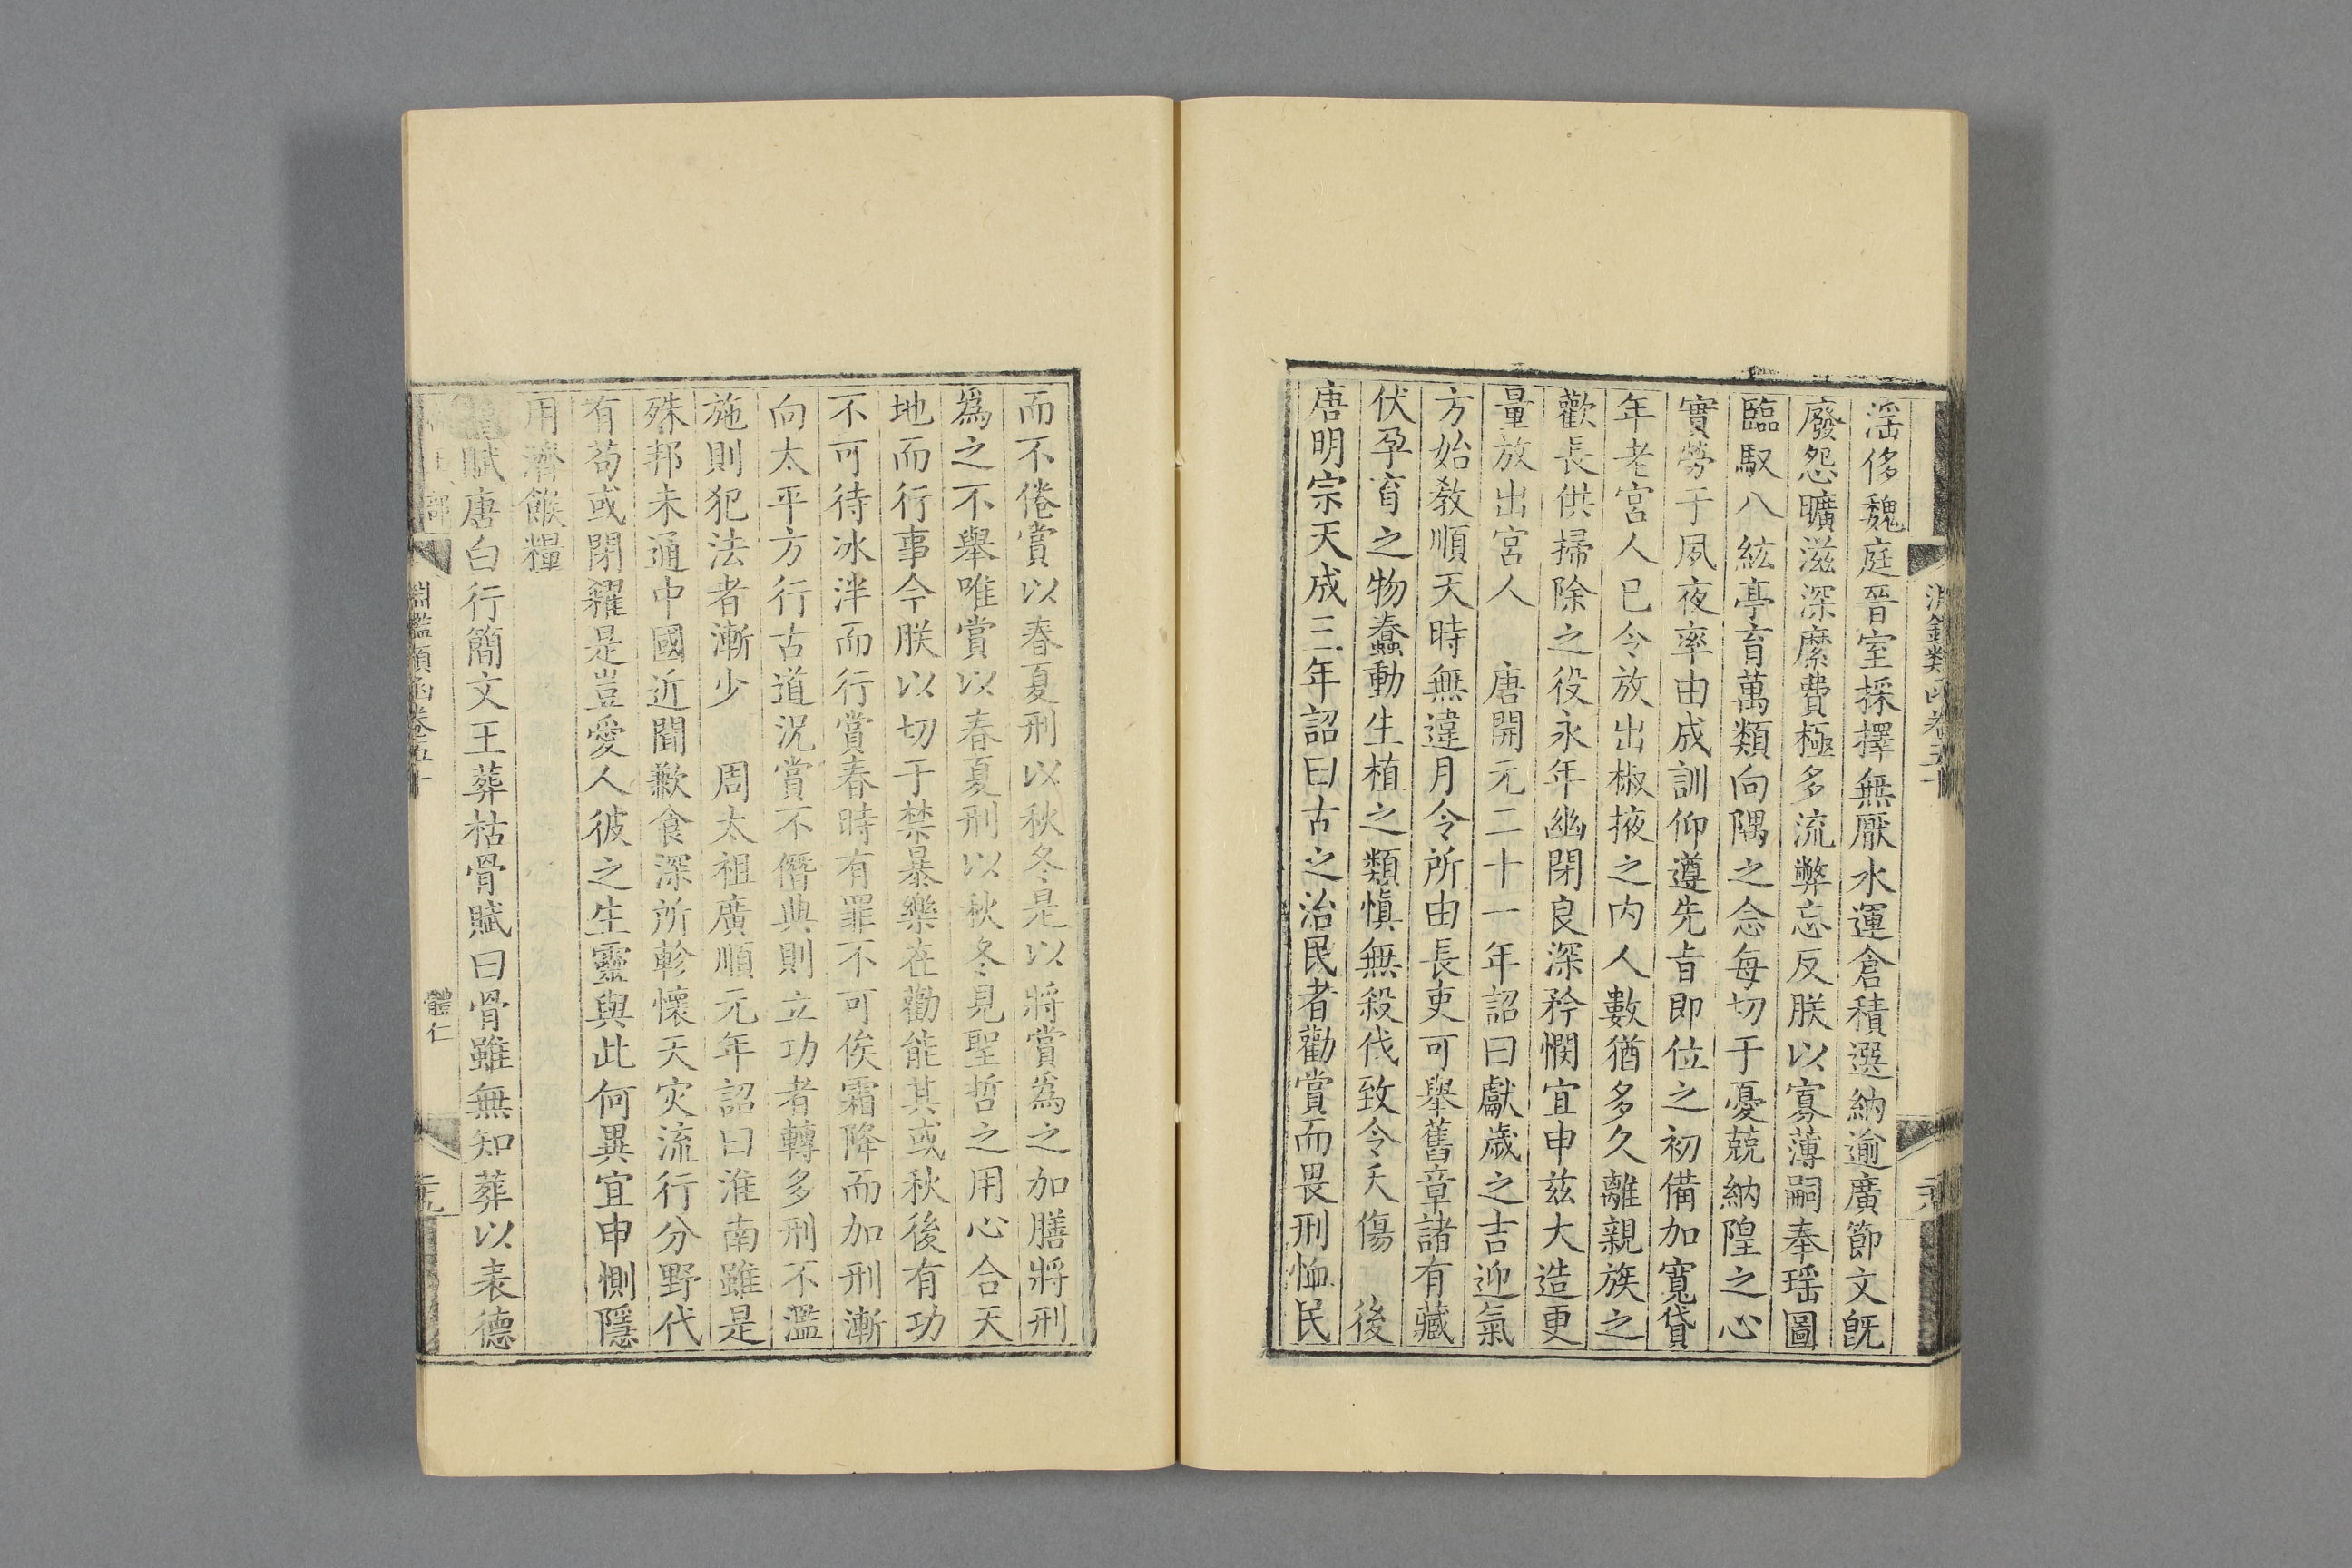 淵鑑類函卷五十
淫侈魏庭晉室採擇無厭水運倉積選納逾廣節文旣
廢怨曠滋深縻費極多流弊忘反朕以寡薄嗣奉瑶圖
臨馭八紘亭育萬類向隅之念每切于憂兢納隍之心
實勞于夙夜率由成訓仰遵先旨即位之初備加寬貸
年老宮人已令放出椒掖之内人數猶多久離親族之
歡長供掃除之役永年幽閉良深矜憫宜申兹大造更
量放出宮人 唐開元二十一年詔曰獻歲之吉迎氣
方始敎順天時無違月令所由長吏可舉舊章諸有藏
伏孕育之物蠢動生植之類愼無殺伐致令夭傷 後
唐明宗天成三年詔曰古之治民者勸賞而畏刑恤民
而不倦賞以春夏刑以秋冬是以將賞爲之加膳將刑
爲之不舉唯賞以春夏刑以秋冬見聖哲之用心合天
地而行事今朕以切于禁暴樂在勸能其或秋後有功
不可待冰泮而行賞春時有罪不可俟霜降而加刑漸
向太平方行古道況賞不僭典則立功者轉多刑不濫
施則犯法者漸少 周太祖廣順元年詔曰淮南雖是
殊邦未通中國近聞歉食深所軫懷天灾流行分野代
有苟或閉糴是豈愛人彼之生靈與此何異宜申惻隱
用濟餱糧
賦唐白行簡文王葬枯骨賦曰骨雖無知葬以表德
淵鑑類函卷五十
體仁